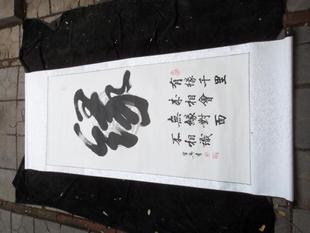 緣
有緣千里
来相會
無緣對面
不相識